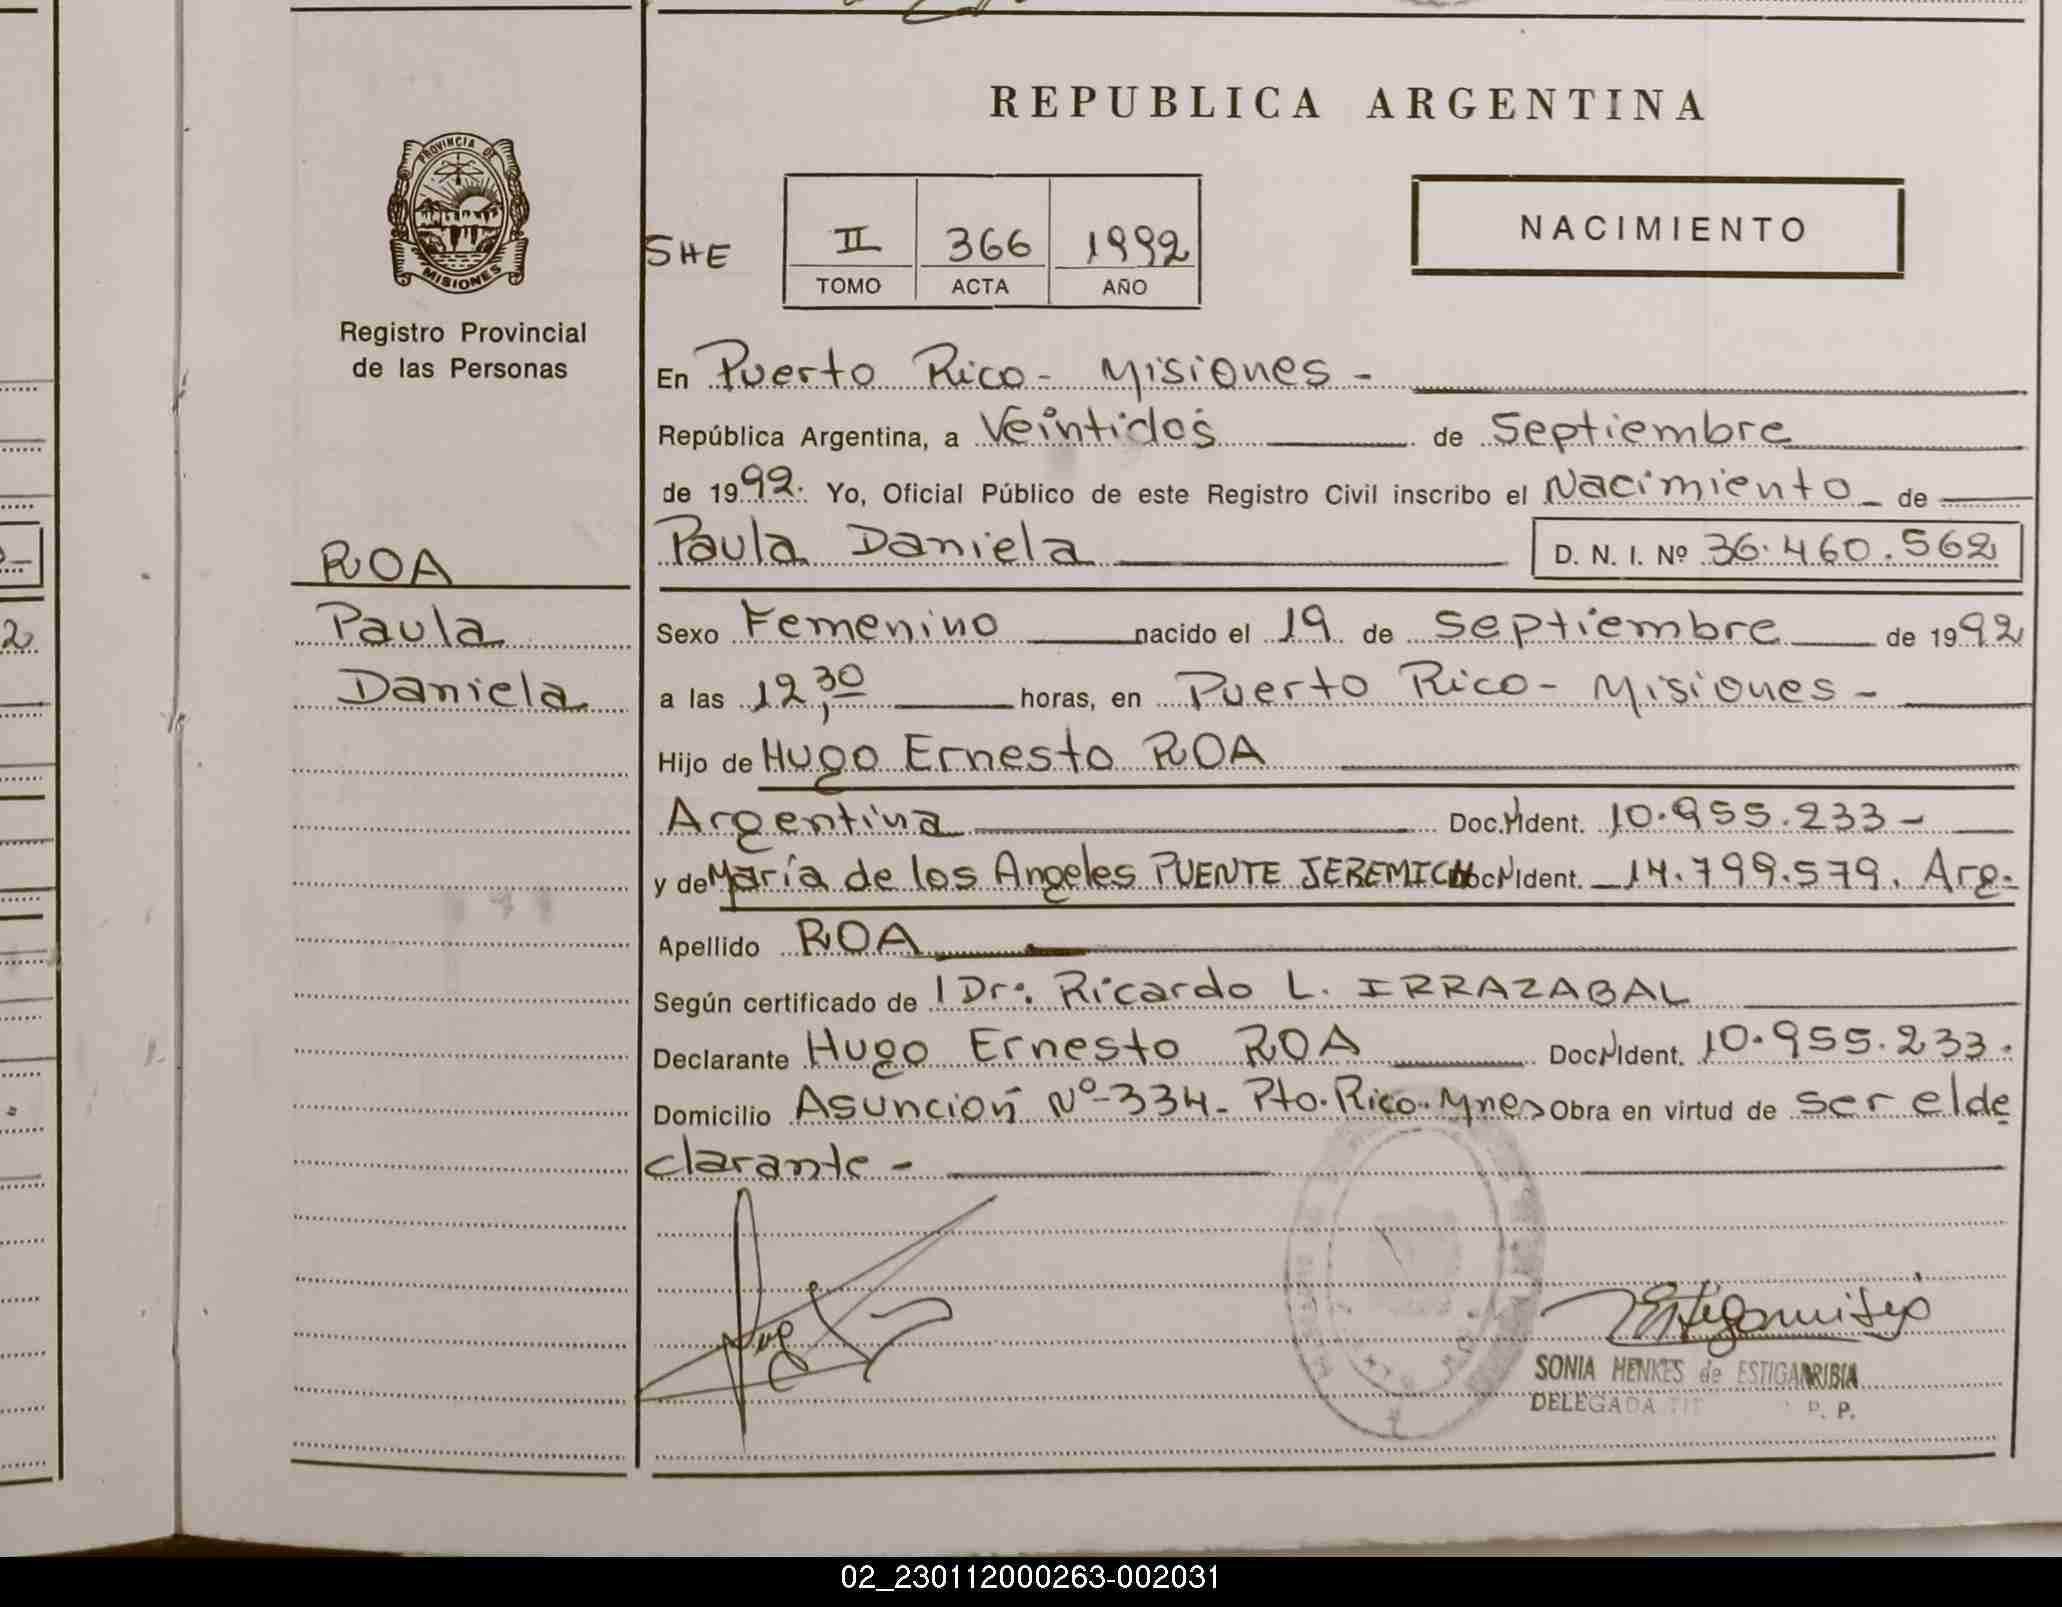 REPUBLICA ARGENTINA
PROVINCIA DE
MISIONES
Registro Provincial
de las Personas
SHE
II 366 1992
TOMO ACTA AÑO
NACIMIENTO
En Puerto Rico - Misiones -
República Argentina, a Veintidos de Septiembre
de 1992. Yo, Oficial Público de este Registro Civil inscribo el Nacimiento de
ROA
Paula Daniela D. N. I. Nº 36.460.562
Paula
Sexo Femenino nacido el 19 de Septiembre de 1992
Daniela
a las 12,30 horas, en Puerto Rico - Misiones -
Hijo de Hugo Ernesto ROA
Argentina Doc. Ident. 10.955.233 -
y de María de los Angeles PUENTE JEREMICH Doc. Ident. 14.799.579. Arg.
Apellido ROA
Según certificado de Dr. Ricardo L. IRRAZABAL
Declarante Hugo Ernesto ROA Doc. Ident. 10.955.233.
Domicilio Asunción Nº 334 - Pto. Rico - Mnes Obra en virtud de ser el de
clarante -
SONIA HENKES de ESTIGARRIBIA
DELEGADA TIT P. P.
02_230112000263-002031